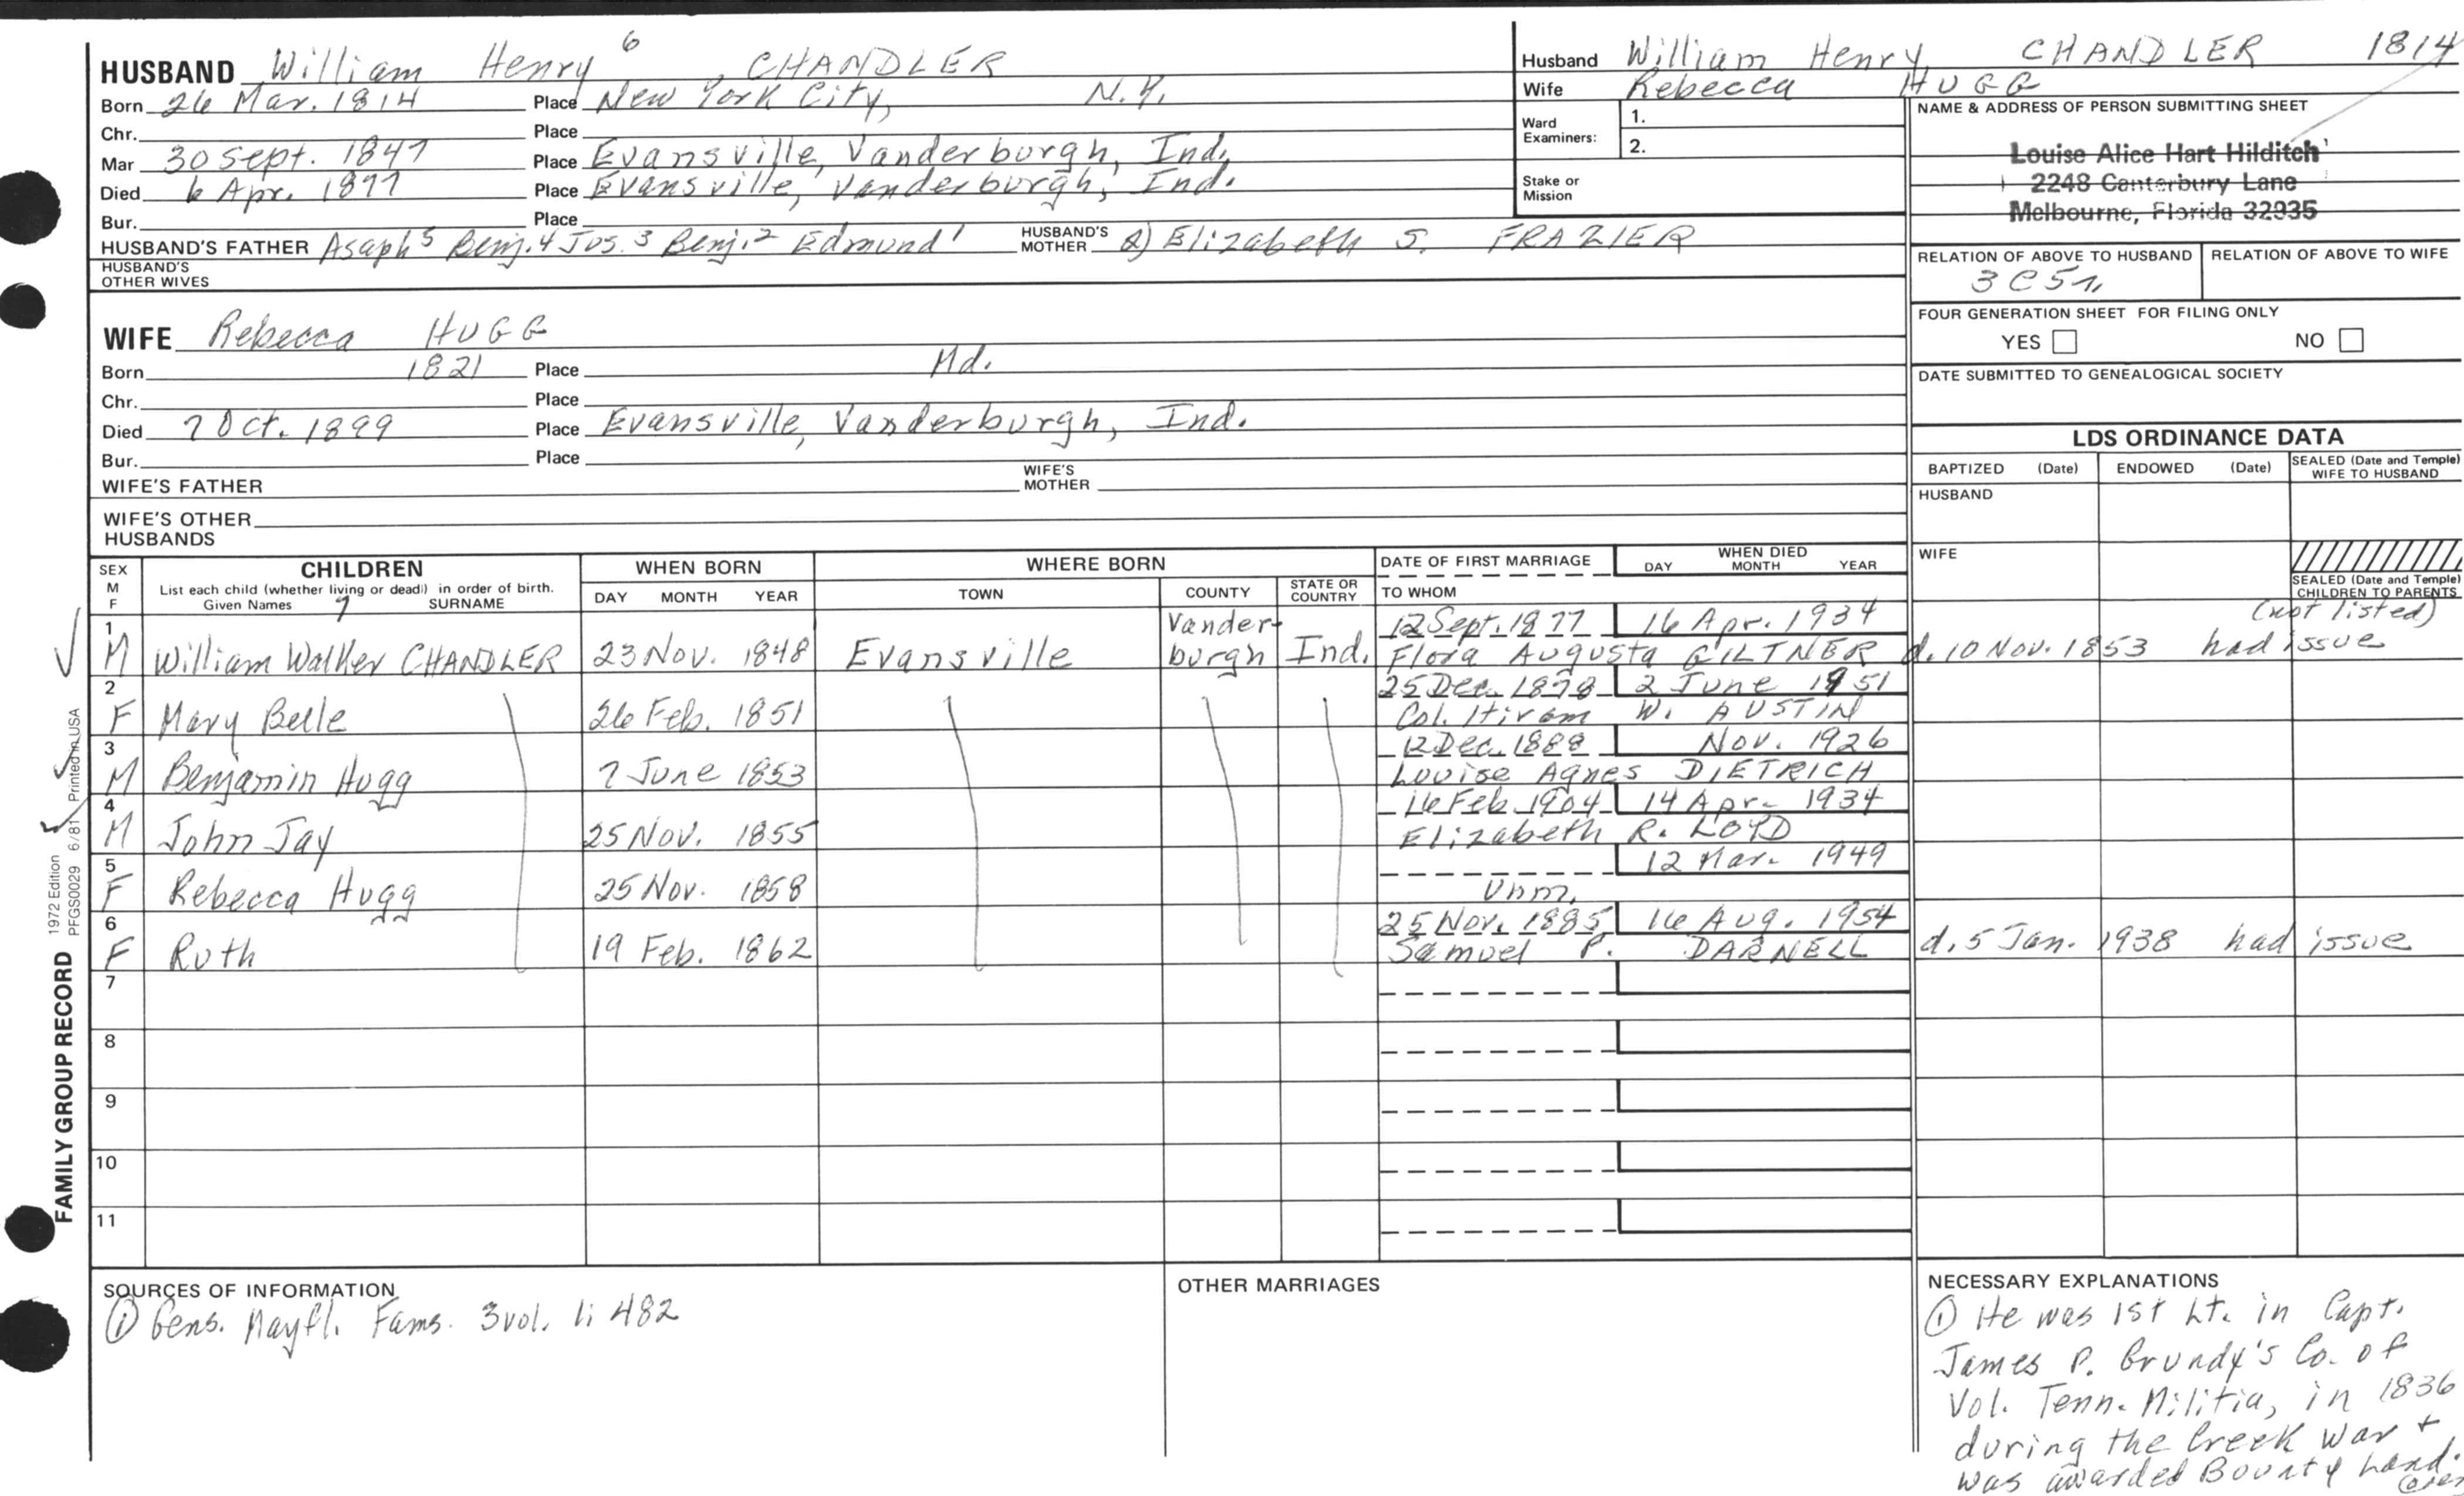 HUSBAND William Henry 6, CHANDLER
Born 26 Mar. 1814 Place New York City, N.Y.
Chr. Place
Mar 30 Sept. 1847 Place Evansville, Vanderburgh, Ind.
Died 6 Apr. 1897 Place Evansville, Vanderburgh, Ind.
Bur. Place
HUSBAND'S FATHER Asaph 5 Benj. 4 Jos. 3 Benj. 2 Edmund 1 HUSBAND'S MOTHER 2) Elizabeth S. FRAZIER
HUSBAND'S OTHER WIVES
WIFE Rebecca HUGG
Born 1821 Place Md.
Chr. Place
Died 7 Oct. 1899 Place Evansville, Vanderburgh, Ind.
Bur. Place
WIFE'S FATHER WIFE'S MOTHER
WIFE'S OTHER HUSBANDS
Husband William Henry, CHANDLER 1814
Wife Rebecca HUGG
Ward Examiners: 1.
2.
Stake or Mission
NAME & ADDRESS OF PERSON SUBMITTING SHEET
Louise Alice Hart Hilditch
2248 Canterbury Lane
Melbourne, Florida 32935
RELATION OF ABOVE TO HUSBAND RELATION OF ABOVE TO WIFE
3C5r.
FOUR GENERATION SHEET FOR FILING ONLY
YES NO
DATE SUBMITTED TO GENEALOGICAL SOCIETY
LDS ORDINANCE DATA
BAPTIZED (Date) ENDOWED (Date) SEALED (Date and Temple) WIFE TO HUSBAND
HUSBAND
WIFE
SEALED (Date and Temple) CHILDREN TO PARENTS
SEX M F CHILDREN List each child (whether living or dead) in order of birth. Given Names 7 SURNAME WHEN BORN DAY MONTH YEAR WHERE BORN TOWN COUNTY STATE OR COUNTRY DATE OF FIRST MARRIAGE TO WHOM WHEN DIED DAY MONTH YEAR
1 Vander- 12 Sept. 1877 16 Apr. 1934 (not listed)
M William Walker CHANDLER 23 Nov. 1848 Evansville burgh Ind. Flora Augusta GILTNER d. 10 Nov. 1853 had issue
2 25 Dec. 1878 2 June 1951
F Mary Belle 26 Feb. 1851 Col. Hiram W. AUSTIN
3 12 Dec. 1888 Nov. 1926
M Benjamin Hugg 7 June 1853 Louise Agnes DIETRICH
4 16 Feb 1904 14 Apr. 1934
M John Jay 25 Nov. 1855 Elizabeth R. LOYD
5 12 Mar. 1949
F Rebecca Hugg 25 Nov. 1858 Unm.
6 25 Nov. 1885 16 Aug. 1954
F Ruth 19 Feb. 1862 Samuel P. DARNELL d. 5 Jan. 1938 had issue
7
8
9
10
11
SOURCES OF INFORMATION
① Gens. Mayfl. Fams. 3 vol. 1: 482
OTHER MARRIAGES
NECESSARY EXPLANATIONS
① He was 1st Lt. in Capt.
James P. Grundy's Co. of
Vol. Tenn. Militia, in 1836
during the Creek War +
was awarded Bounty Land.
over
FAMILY GROUP RECORD 1972 Edition PFGS0029 6/81 Printed in USA